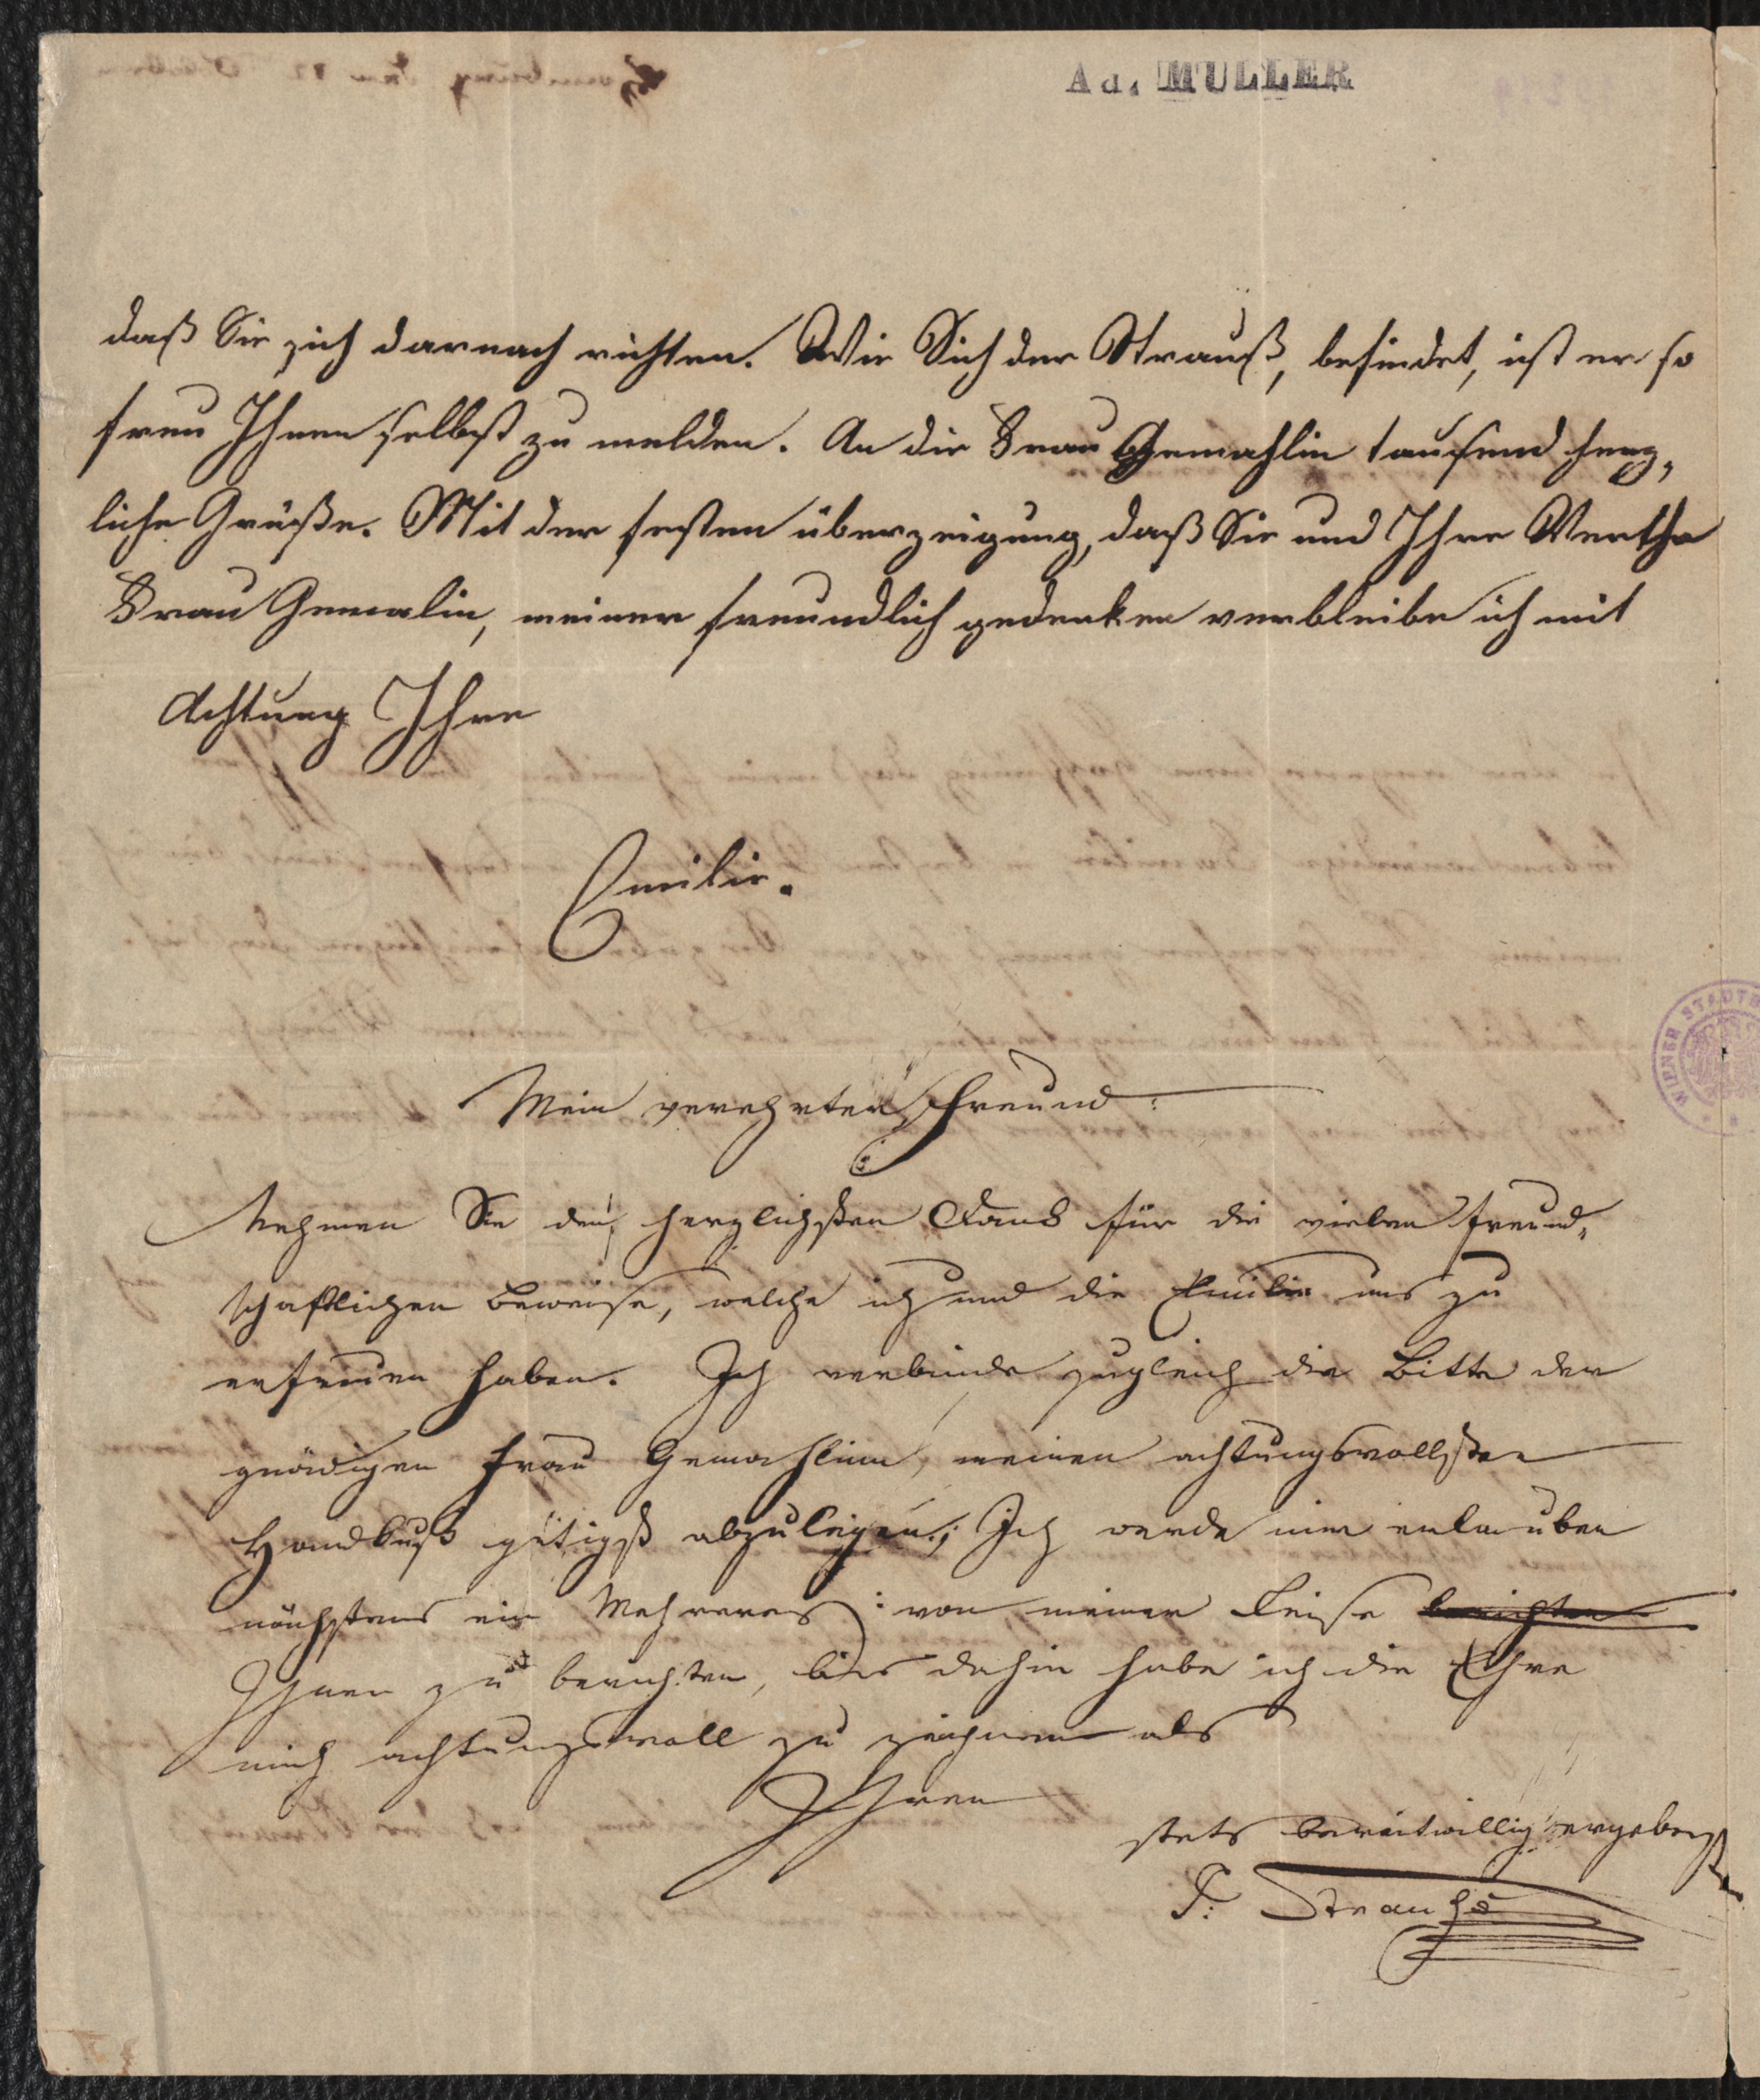 Ad. MULLER
daß Sie sich darnach richten. Wie Sich der Strauß, befindet, ist er so
freu Ihnen selbst zu melden. An die Frau Gemahlin tausend herz,
liche Grüße. Mit der festen überzeigung, daß Sie und Ihre Werthe
Frau Gemalin, meiner freundlich gedenken verbleibe ich mit
Achtung Ihre
Emilie.
Mein verehrter Freund:
Nehmen Sie den herzlichsten Dank für die vielen freund,
schaftlichen Beweise, welche ich und die Emilie uns zu
erfreuen haben. Ich verbinde zugleich die Bitte der
gnädigen Frau Gemahlinn, meinen achtungsvollsten
Handkuß gütigst abzulegen; Ich werde mir erlauben
nächstens ein Mehreres von meiner Reise berichten
Ihnen zu berichten, bis dahin habe ich die Ehre
mich achtungsvoll zu zeichnen als
Ihren
stets bereitwillig ergebenster
J: Strauß
WIENER STADTB